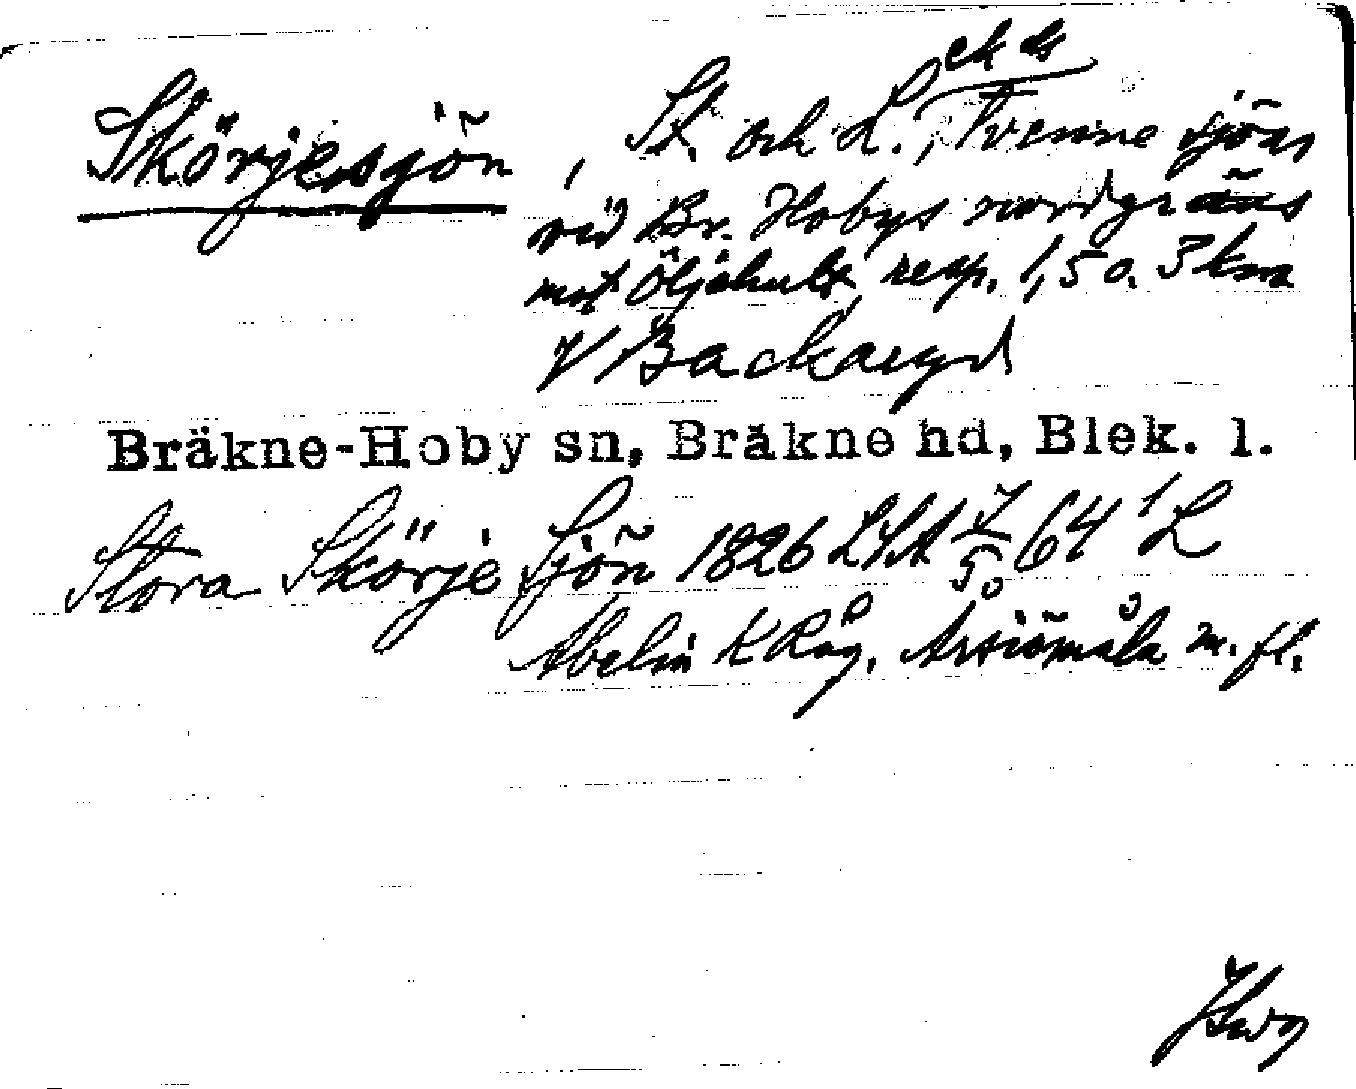 ek ds
Skörjesjön, St. och L., Tvenne sjöar
vid Br. Hobys nordgräns
mot Öljehult, resp. 1,5 o. 3 km
V Backaryd
Bräkne-Hoby sn, Bräkne hd, Blek. l.
Stora Skörje Sjön 1826 LSA 7/50 64 ¹ L
Abelin K Råg, m. fl.